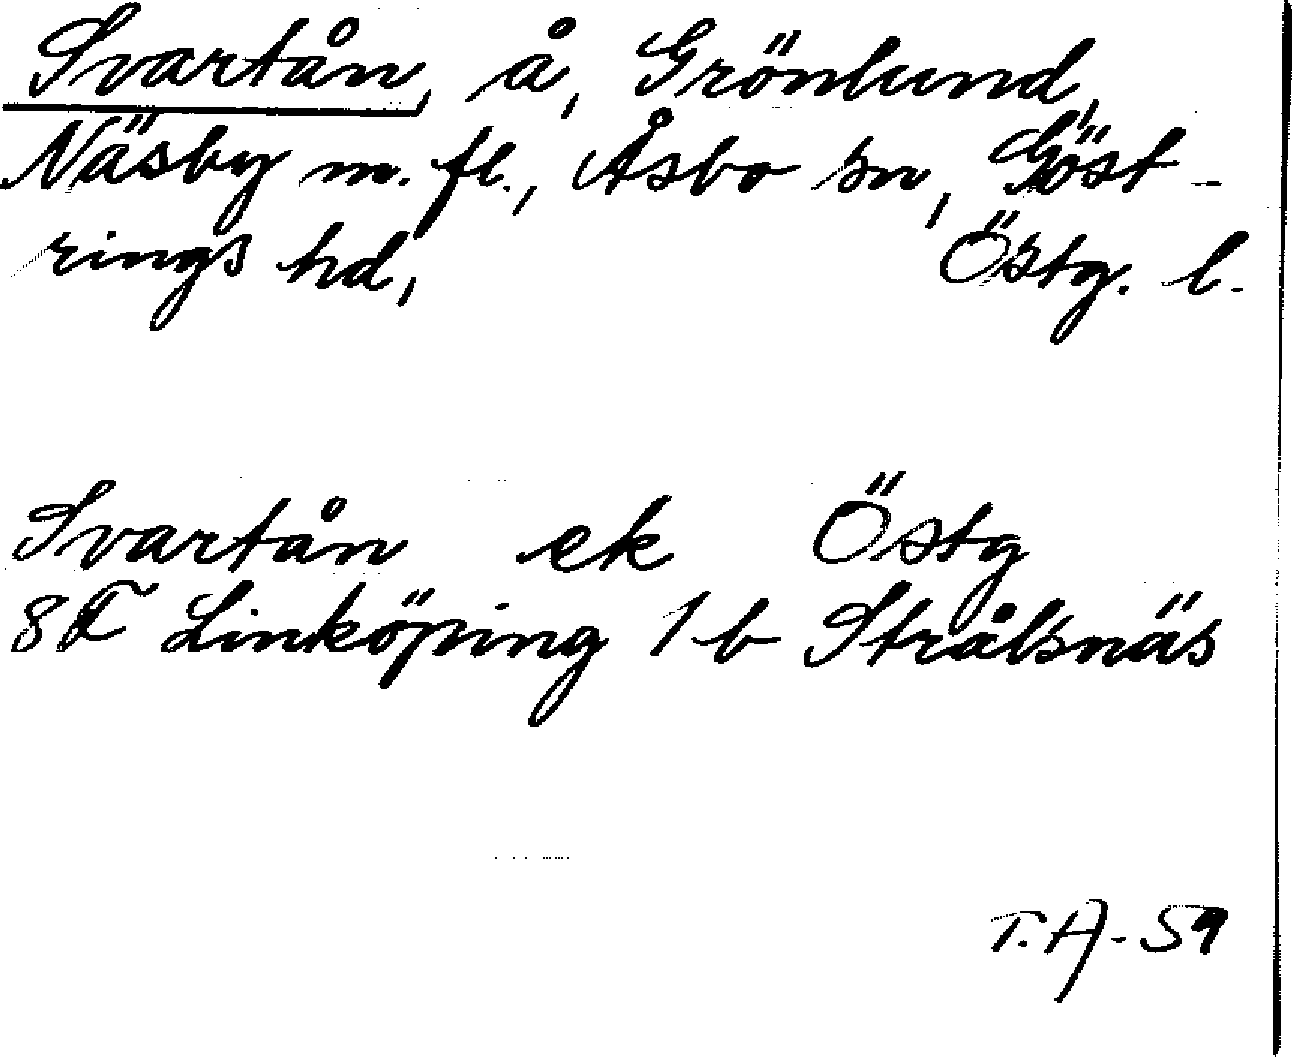 Svartån, å, Grönlund,
Näsby m. fl., Åsbo sn, Göst-
rings hd, Östg. l.
Svartån ek Östg
8F Linköping 1b Strålsnäs
T.A-59